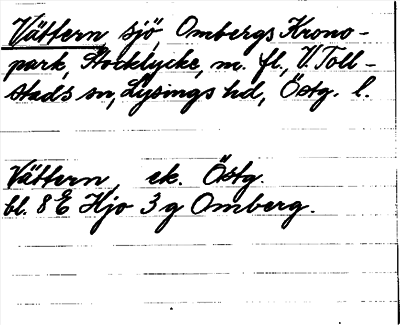 Vättern, sjö, Ombergs Krono-
park, Stocklycke, m. fl., V. Toll-
stads sn, Lysings hd, Östg. l.
Vättern, ek. Östg.
bl. 8 E Hjo 3 g Omberg.